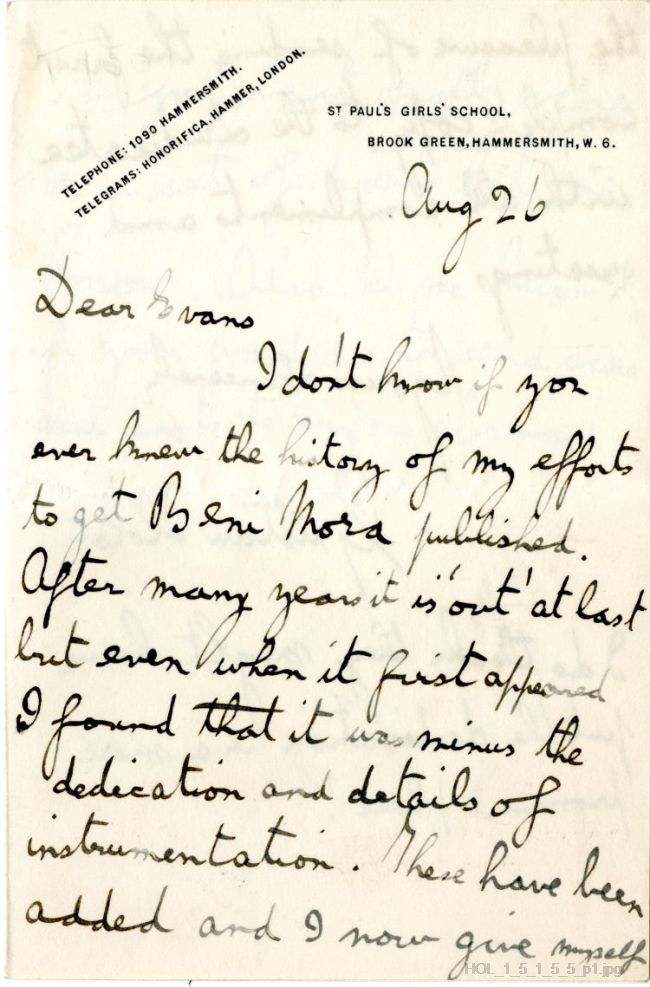 TELEPHONE: 1090 HAMMERSMITH.
TELEGRAMS: HONORIFICA, HAMMER, LONDON.
ST PAUL'S GIRLS' SCHOOL,
BROOK GREEN, HAMMERSMITH, W. 6.
Aug 26
Dear Evans
I don't know if you
ever knew the history of my efforts
to get Beni Mora published.
After many years it is 'out' at last
but even when it first appeared
I found that it was minus the
dedication and details of
instrumentation. These have been
added and I now give myself
HOL_1_5_1_5_5_p1.jpg